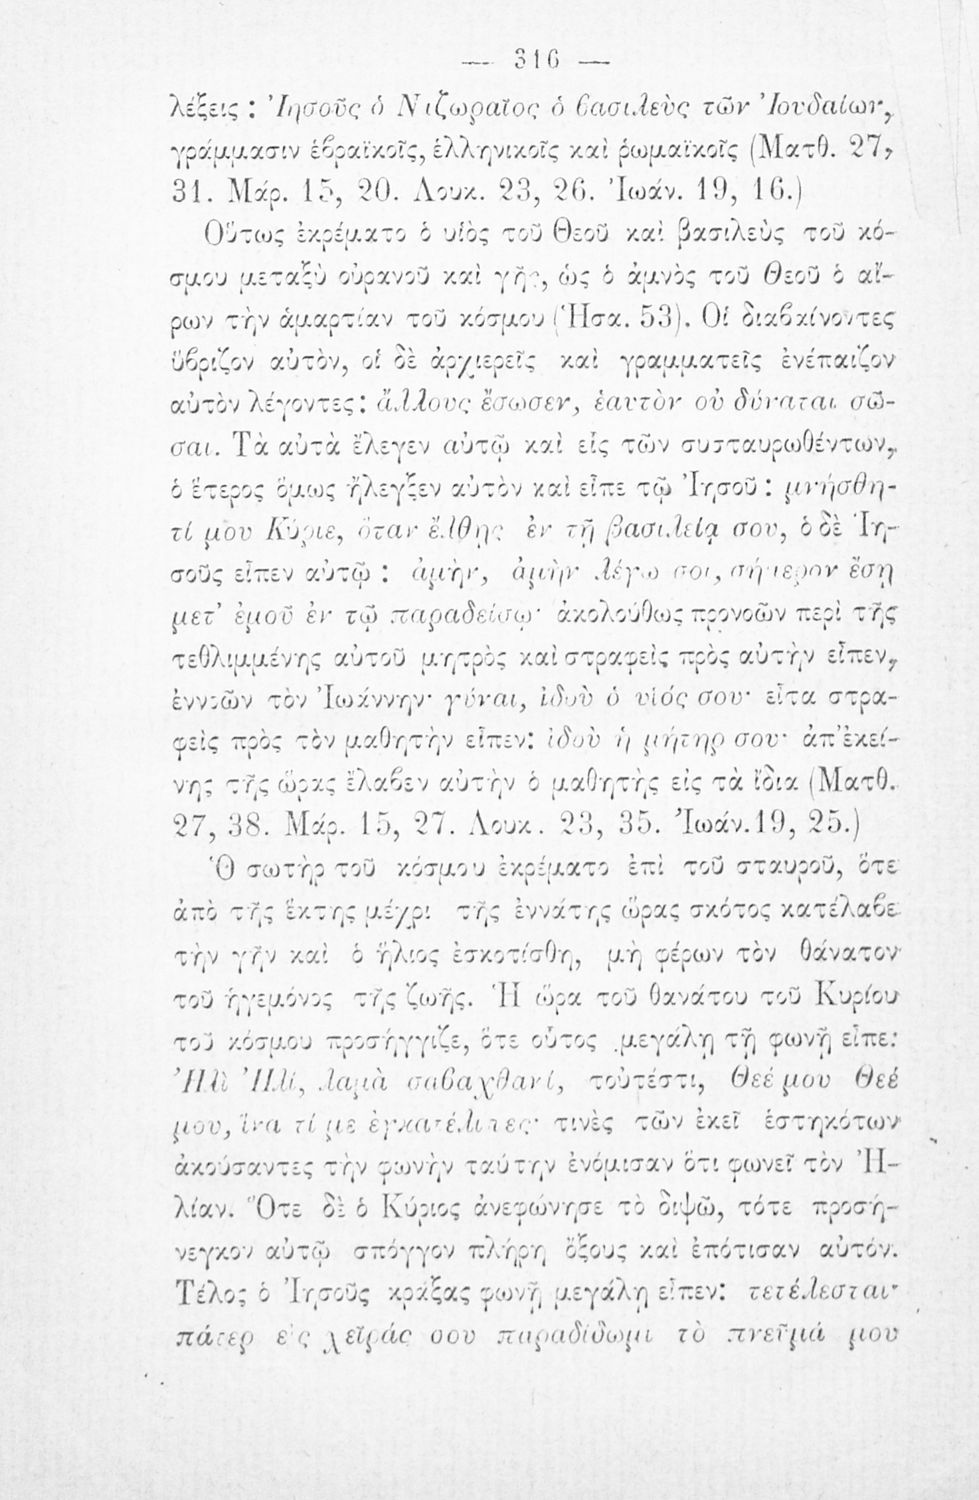 — 316 —
λέξεις : Ἰησοῦς ὁ Νιζωραῖος ὁ βασιλεὺς τῶν Ἰουδαίων,
γράμμασιν ἑβραϊκοῖς, ἑλληνικοῖς καὶ ῥωμαϊκοῖς (Ματθ. 27,
31. Μάρ. 15, 20. Λουκ. 23, 26. Ἰωάν. 19, 16.)
Οὕτως ἐκρέματο ὁ υἱὸς τοῦ Θεοῦ καὶ βασιλεὺς τοῦ κό-
σμου μεταξὺ οὐρανοῦ καὶ γῆς, ὡς ὁ ἀμνὸς τοῦ Θεοῦ ὁ αἴ-
ρων τὴν ἁμαρτίαν τοῦ κόσμου (Ἡσα. 53). Οἱ διαβαίνοντες
ὕβριζον αὐτὸν, οἱ δὲ ἀρχιερεῖς καὶ γραμματεῖς ἐνέπαιζον
αὐτὸν λέγοντες: ἄλλους ἔσωσεν, ἑαυτὸν οὐ δύναται σῶ-
σαι. Τὰ αὐτὰ ἔλεγεν αὐτῷ καὶ εἷς τῶν συσταυρωθέντων,
ὁ ἕτερος ὅμως ἤλεγξεν αὐτὸν καὶ εἶπε τῷ Ἰησοῦ : μνήσθη-
τί μου Κύριε, ὅταν ἔλθῃς ἐν τῇ βασιλείᾳ σου, ὁ δὲ Ἰη-
σοῦς εἶπεν αὐτῷ : ἀμὴν, ἀμὴν λέγω σοι, σήμερον ἔσῃ
μετ' ἐμοῦ ἐν τῷ παραδείσῳ· ἀκολούθως προνοῶν περὶ τῆς
τεθλιμμένης αὐτοῦ μητρὸς καὶ στραφεὶς πρὸς αὐτὴν εἶπεν,
ἐννοῶν τὸν Ἰωάννην· γύναι, ἰδοὺ ὁ υἱός σου· εἶτα στρα-
φεὶς πρὸς τὸν μαθητὴν εἶπεν: ἰδοὺ ἡ μήτηρ σου· ἀπ' ἐκεί-
νης τῆς ὥρας ἔλαβεν αὐτὴν ὁ μαθητὴς εἰς τὰ ἴδια (Ματθ.
27, 38. Μάρ. 15, 27. Λουκ. 23, 35. Ἰωάν. 19, 25.)
Ὁ σωτὴρ τοῦ κόσμου ἐκρέματο ἐπὶ τοῦ σταυροῦ, ὅτε
ἀπὸ τῆς ἕκτης μέχρι τῆς ἐννάτης ὥρας σκότος κατέλαβε
τὴν γῆν καὶ ὁ ἥλιος ἐσκοτίσθη, μὴ φέρων τὸν θάνατον
τοῦ ἡγεμόνος τῆς ζωῆς. Ἡ ὥρα τοῦ θανάτου τοῦ Κυρίου
τοῦ κόσμου προσήγγιζε, ὅτε οὗτος μεγάλῃ τῇ φωνῇ εἶπε:
Ἠλὶ Ἠλί, λαμὰ σαβαχθανί, τοὐτέστι, Θεέ μου Θεέ
μου, ἵνα τί με ἐγκατέλιπες· τινὲς τῶν ἐκεῖ ἑστηκότων
ἀκούσαντες τὴν φωνὴν ταύτην ἐνόμισαν ὅτι φωνεῖ τὸν Ἠ-
λίαν. Ὅτε δὲ ὁ Κύριος ἀνεφώνησε τὸ διψῶ, τότε προσή-
νεγκον αὐτῷ σπόγγον πλήρη ὄξους καὶ ἐπότισαν αὐτόν.
Τέλος ὁ Ἰησοῦς κράξας φωνῇ μεγάλῃ εἶπεν: τετέλεσται·
πάτερ εἰς χεῖράς σου παραδίδωμι τὸ πνεῦμά μου